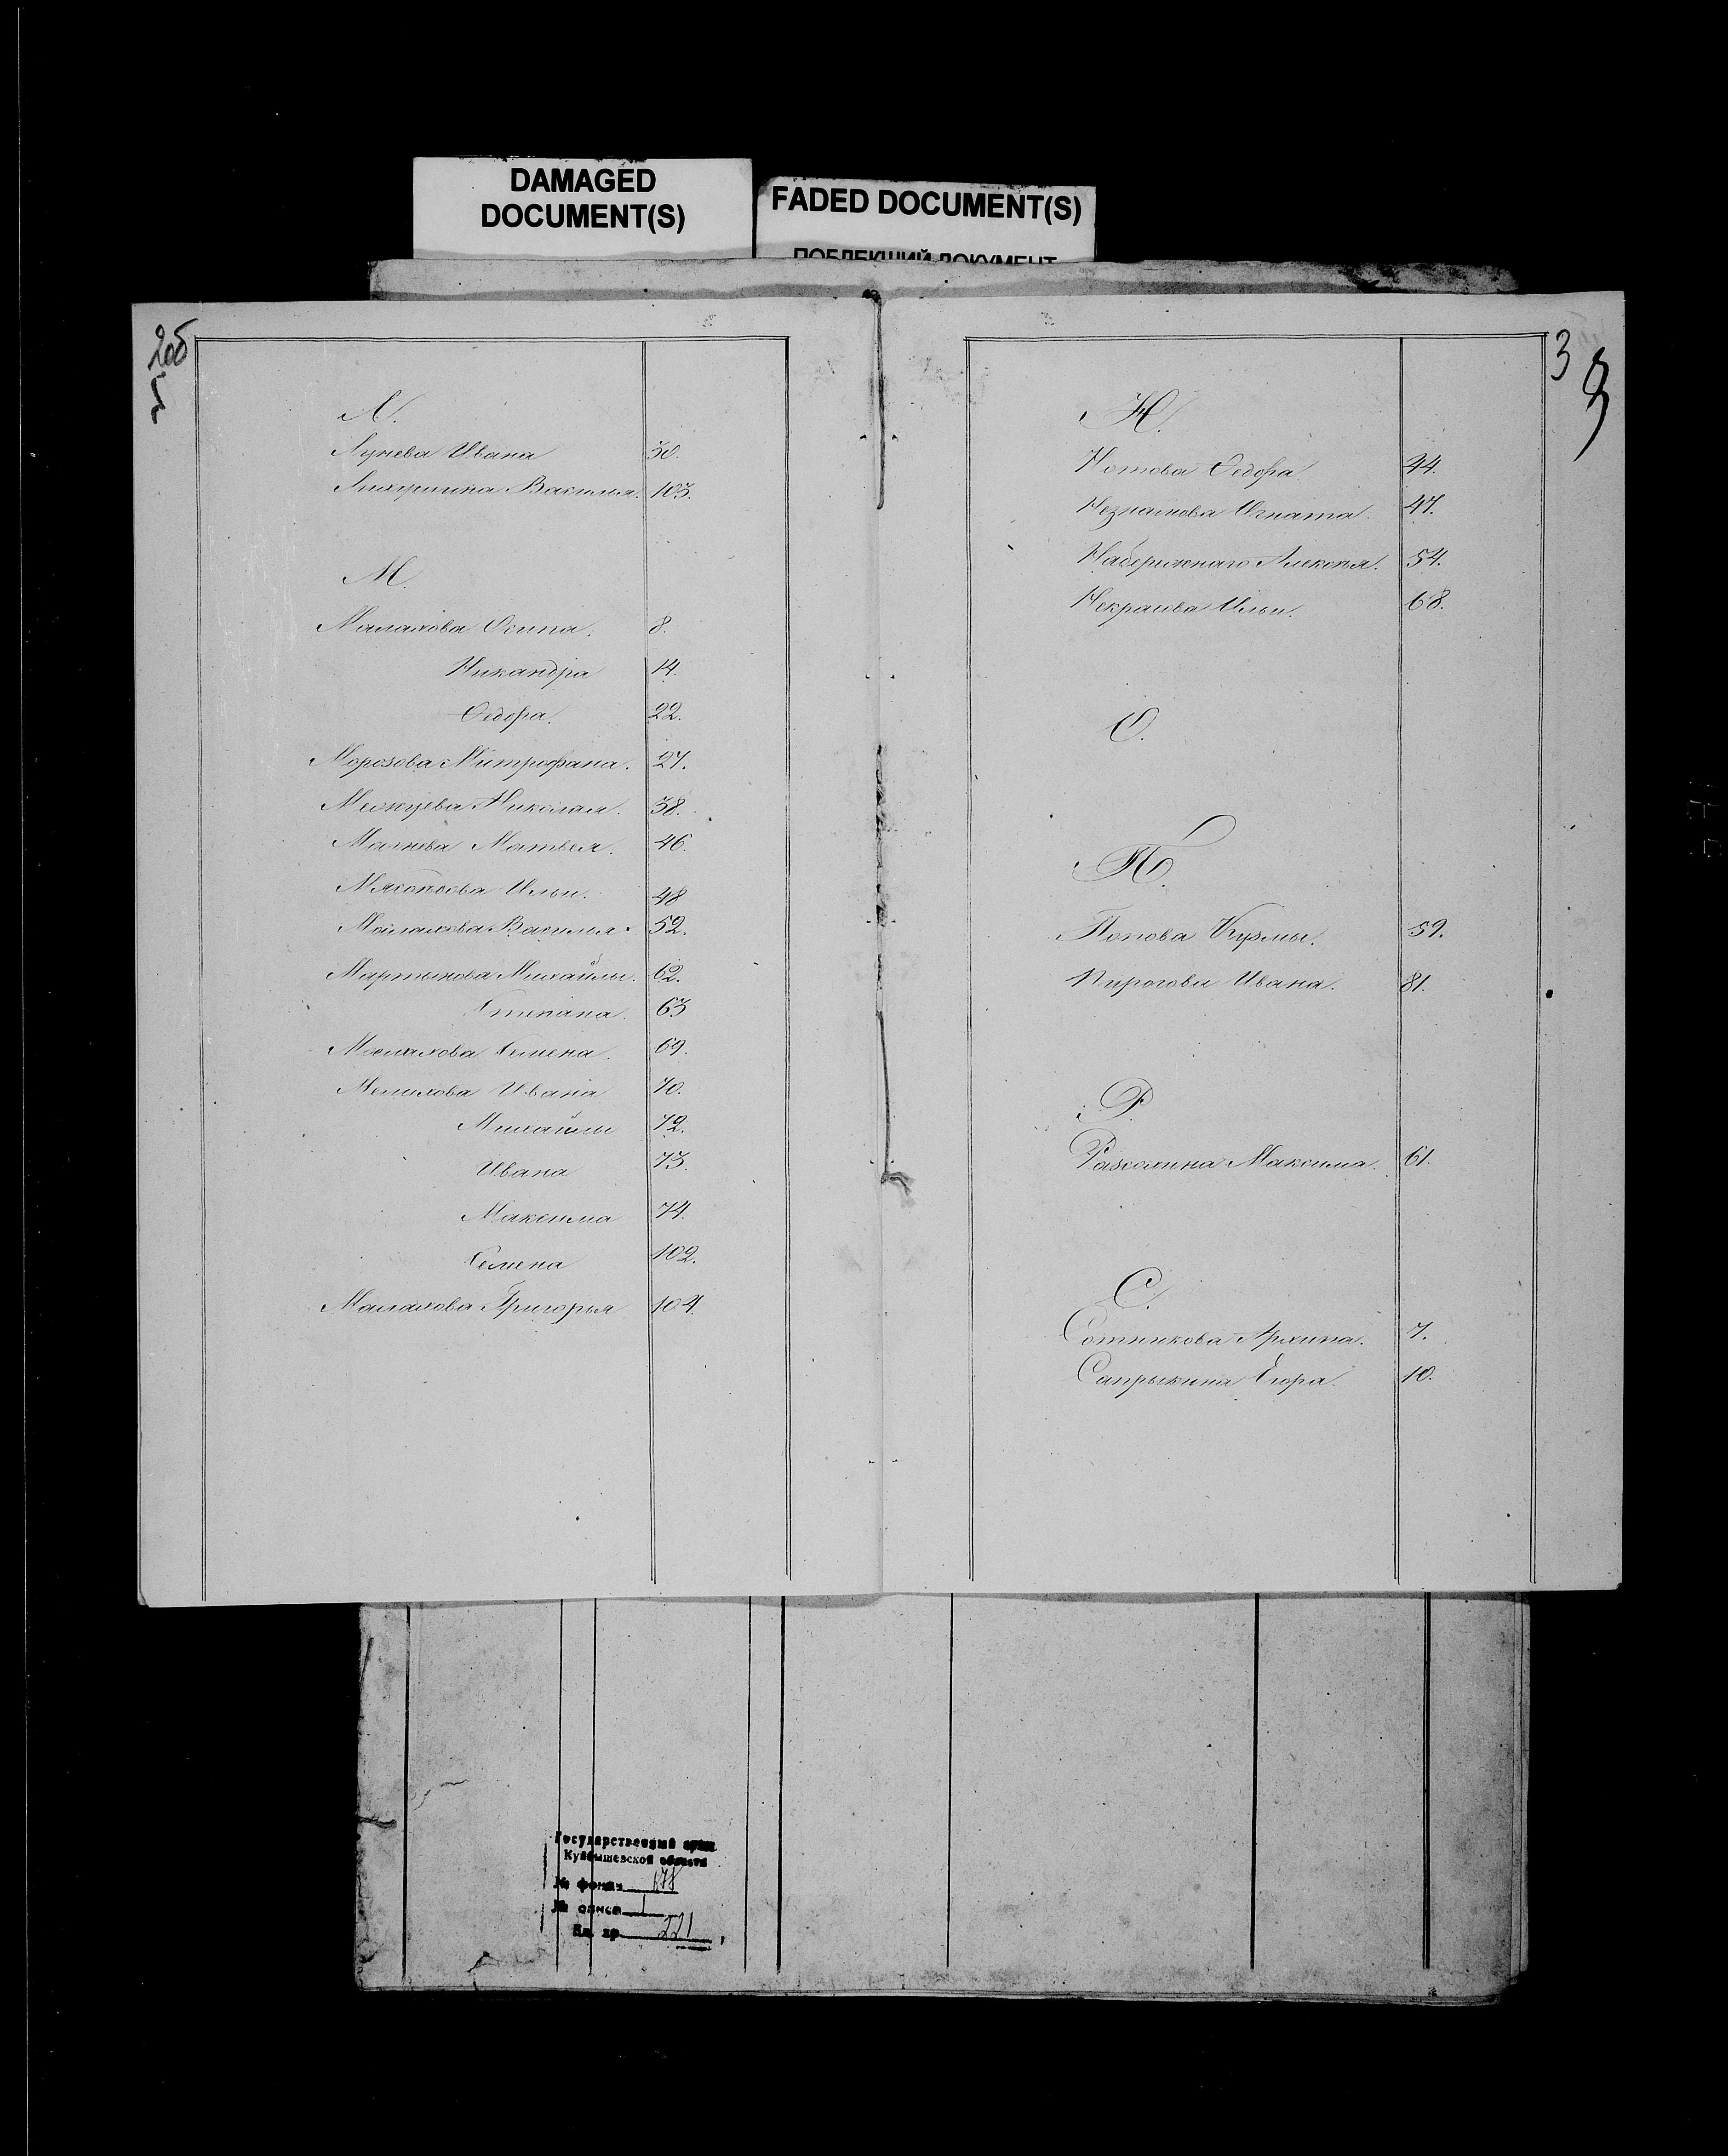 DAMAGED
DOCUMENT(S)
FADED DOCUMENT(S)
ПОБЛЕКШИЙ ДОКУМЕНТ
2об
Л.
Лунева Ивана 30.
Василья. 103.
М.
Малахова Осипа. 8.
Никандра 14.
Ѳедора. 22.
Морозова Митрофана. 27.
Межуева Николая. 38.
Матвея. 46.
Ильи. 48
Малахова Василья. 52.
Мартынова Михайлы. 62.
Степана. 63
Малахова Семена. 69.
Мелихова Ивана 70.
Михайлы 72.
Ивана 73.
Максима 74.
Семена 102.
Малахова Григорья 104.
3
Н.
Ѳедора 44.
Незнамова Игната. 47.
Набережнаго Алексѣя. 54.
Некрасова Ильи. 68.
О.
П.
Попова Кузмы. 59.
Пирогова Ивана. 81.
Р.
Максима. 61.
С.
Сотникова Архипа. 7.
Сапрыкина Егора. 10.
Государственный архив
Куйбышевской области
№ фонда 678
№ описи 1
Ед. хр. 221